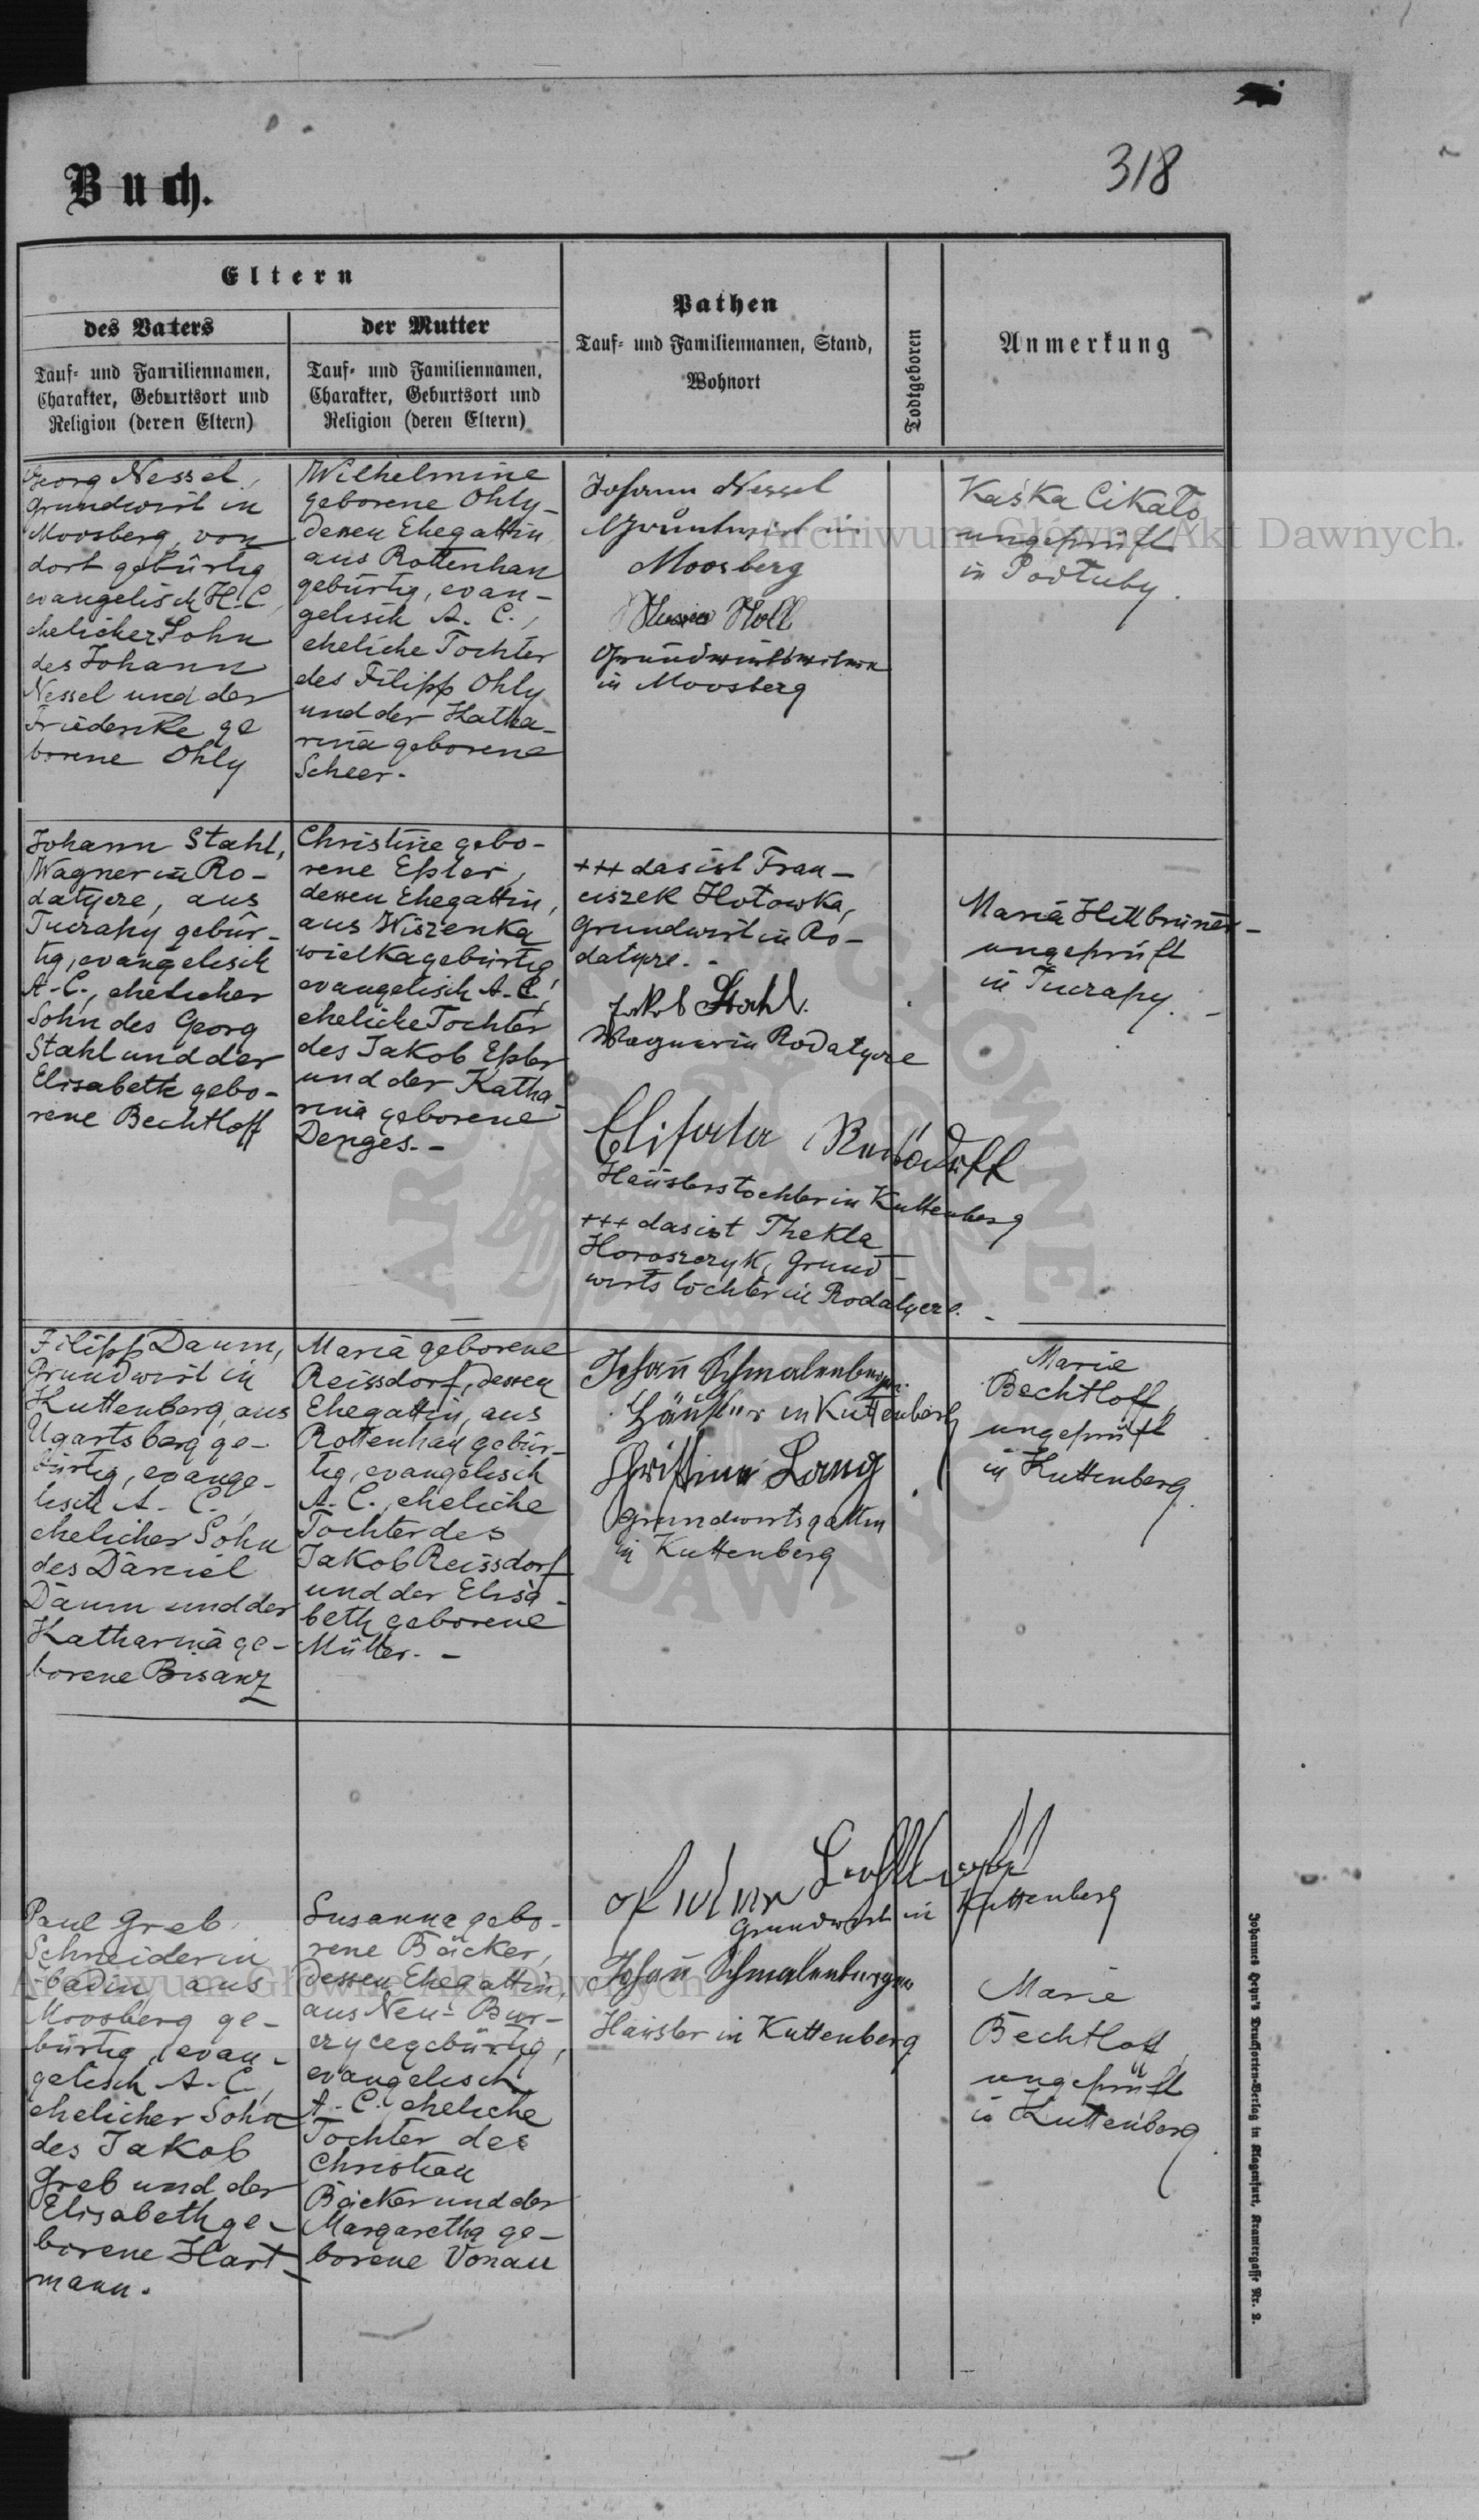 318
Buch.
Eltern
des Vaters
Tauf- und Familiennamen,
Charakter, Geburtsort und
Religion (deren Eltern)
der Mutter
Tauf- und Familiennamen,
Charakter, Geburtsort und
Religion (deren Eltern)
Pathen
Tauf- und Familiennamen, Stand,
Wohnort
Todtgeboren
Anmerkung
Georg Nessel,
Grundwirt in
Moosberg, von
dort gebürtig
evangelisch H.C.,
ehelicher Sohn
des Johann
Nessel und der
Friederike ge
borene Ohly
Wilhelmine
geborene Ohly-
dessen Ehegattin
aus Rottenhan
gebürtig, evan-
gelisch A. C.,
eheliche Tochter
des Filipp Ohly
und der Katha-
rina geborene
Scheer.
Johann Nessel
Grundwirt in
Moosberg
Holl
in Moosberg
Kaśka Cikało
ungeprüft
in Podłuby.
Johann Stahl,
Wagner in Ro-
datycze, aus
Tuczapy gebür-
tig, evangelisch
A.C., ehelicher
Sohn des Georg
Stahl und der
Elisabeth gebo-
rene Bechtloff
Christine gebo-
rene Epler,
dessen Ehegattin,
aus Wiszenka
wielka gebürtig,
evangelisch A.C.,
eheliche Tochter
des Jakob Epler
und der Katha-
rina geborene
Denges. -
+++ das ist Fran-
ciszek Hotowka,
Grundwirt in Ro-
datycze. -
Jakob Stahl.
Wagner in Rodatycze
Häuslerstochter in Kuttenberg
+++ das ist Thekla
Horoszczyk, Grund-
wirtstochter in Rodatycze. -
Maria Hillbruner-
ungeprüft
in Tuczapy. -
Filipp Daum,
Grundwirt in
Kuttenberg, aus
Ugartsberg ge-
bürtig, evange-
lisch A. C.,
ehelicher Sohn
des Daniel
Daum und der
Katharina ge-
borene Bisanz
Maria geborene
Reissdorf, dessen
Ehegattin, aus
Rottenhan gebür-
tig, evangelisch
A. C., eheliche
Tochter des
Jakob Reissdorf
und der Elisa-
beth geborene
Müller. -
Johann Schmalenberger
Häusler in Kuttenberg
Christina Lang
Grundwirtsgattin
in Kuttenberg
Marie
Bechtloff,
ungeprüft
in Kuttenberg.
Paul Greb,
Schneider in
aus
Moosberg ge-
bürtig, evan-
gelisch A. C.,
ehelicher Sohn
des Jakob
Greb und der
Elisabeth ge-
borene Hart-
mann.
Susanna gebo-
rene Bäcker,
dessen Ehegattin,
aus Neu- Bur-
czyce gebürtig,
evangelisch
A. C. eheliche
Tochter des
Christian
Bäcker und der
Margaretha ge-
borene Vonau
Grundwirt in Kuttenberg
Johann Schmalenberger
Häusler in Kuttenberg
Marie
Bechtloff,
ungeprüft
in Kuttenberg.
Johannes Heyn's Drucksorten-Verlag in Klagenfurt, Kramergasse Nr. 2.
Archiwum Główne Akt Dawnych.
Archiwum Główne Akt Dawnych